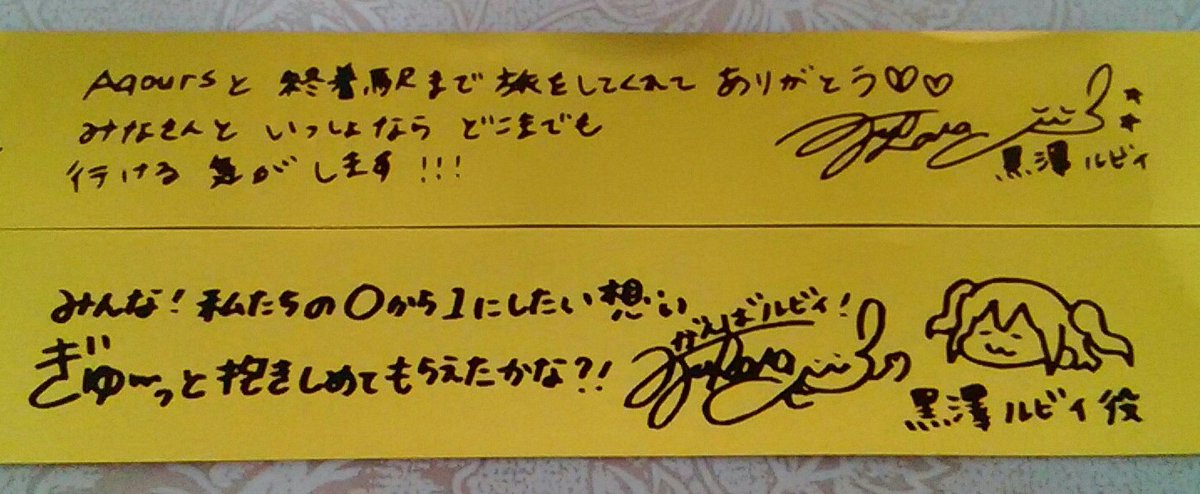 Aqoursと 終着駅まで 旅をしてくれて ありがとう♡♡
みなさんと いっしょなら どこまでも
行ける 気がします!!!
黒澤ルビィ
みんな!私たちの0から1にしたい想い
ぎゅ〜っと抱きしめてもらえたかな?!
がんばルビィ!
黒澤ルビィ役